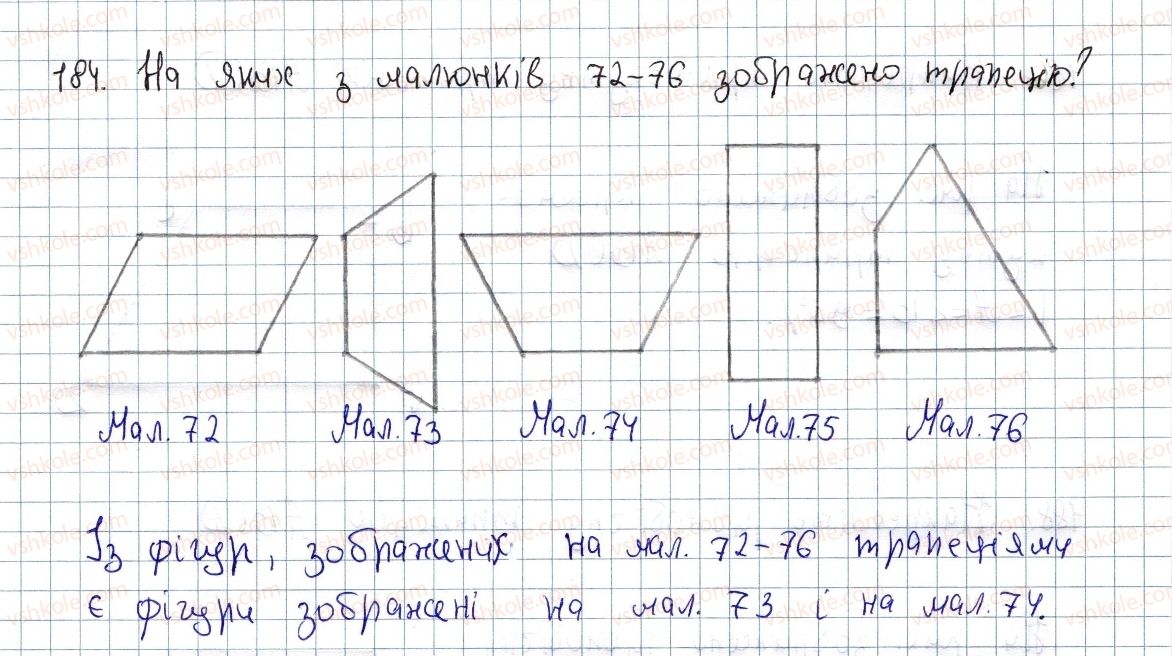 184. На яких з малюнків 72-76 зображено трапецію?
Мал. 72 Мал. 73 Мал. 74 Мал. 75 Мал. 76
Із фігур, зображених на мал. 72-76 трапеціями
є фігури зображені на мал. 73 і на мал. 74.
vshkole.com